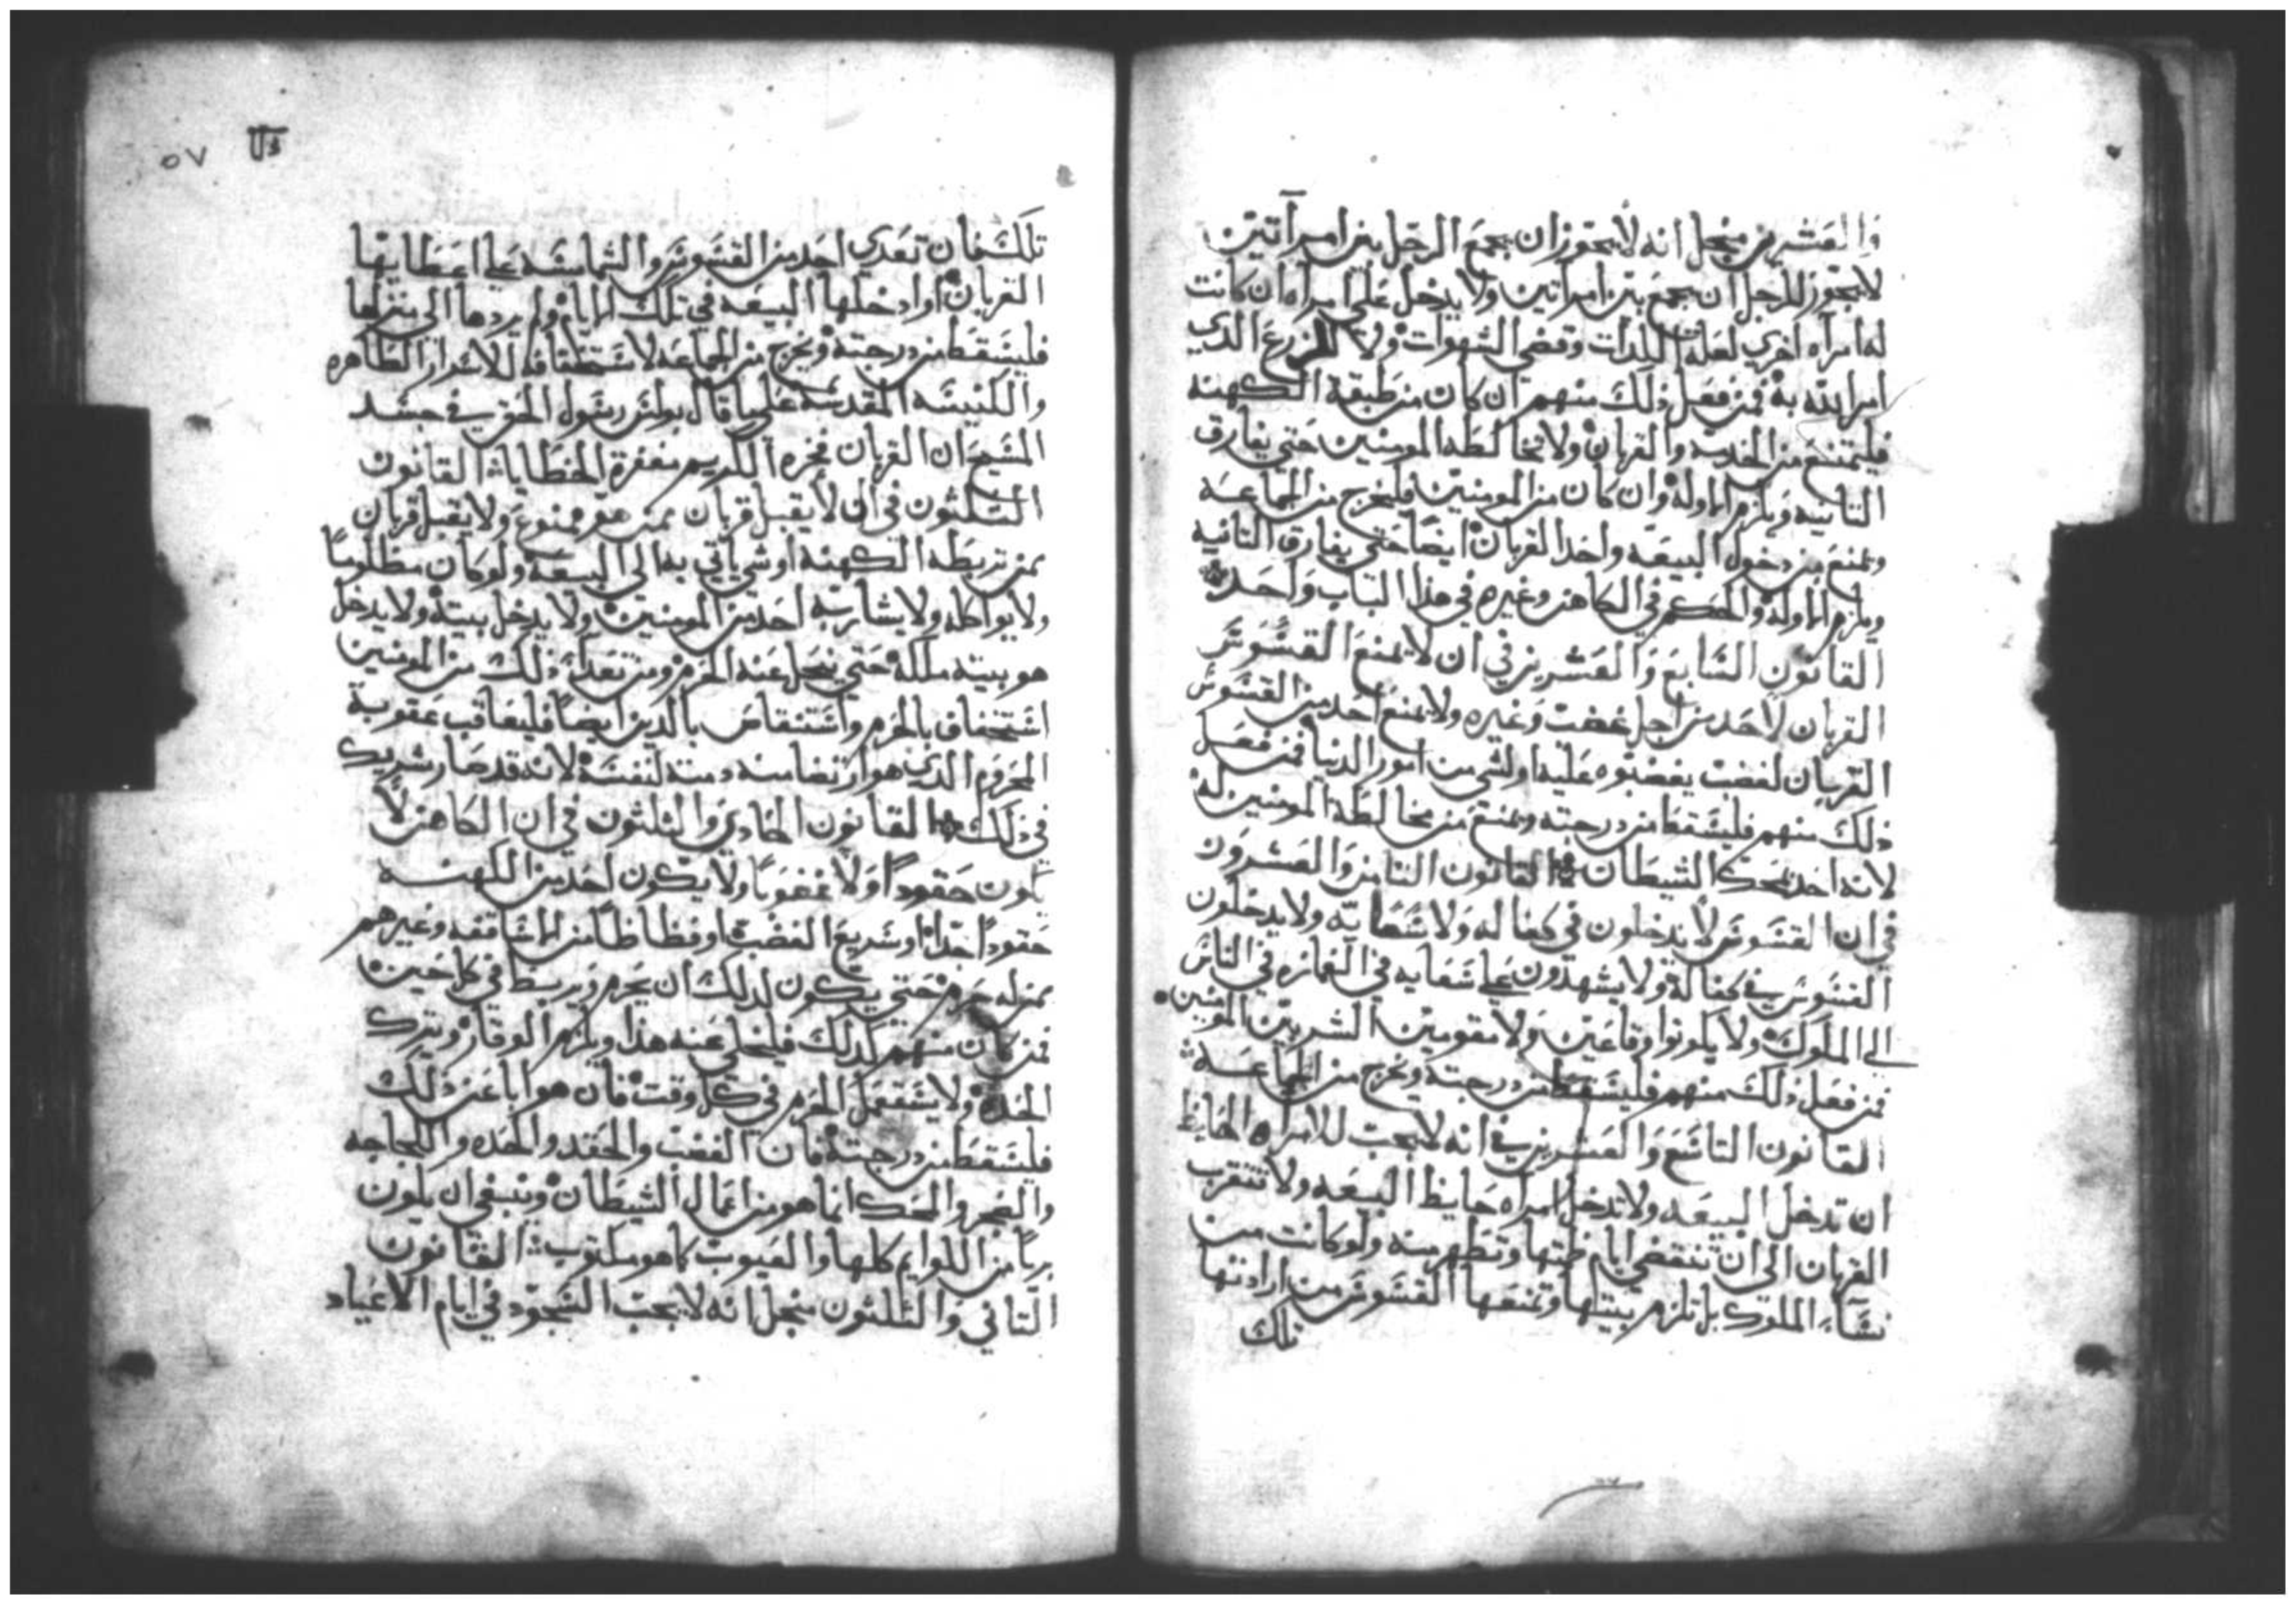 والعشرين من اجل انه لا يجوز ان يجمع الرجل بين امرآتين
لا يجوز للرجل ان يجمع بين امراتين ولا يدخل على امراه ان كانت
له امرآه اخري لعله اللدات وقضى الشهوات ولا الزرع الدي
امر الله به فمن فعل ذلك منهم ان كان من طبقة الكهنه
فليمتنع من الخدمه والقربان ولا يخالطه المومنين حتي يفارق
التانيه ويلزم الاوله وان كان من المومنين فليخرج من الجماعه
ويمنع من دخول البيعه واخد القربان ايضا حتي يفارق التانيه
ويلزم الاوله والحكم في الكاهن وغيره في هذا الباب واحد
القانون السابع والعشرين في ان لا يمنع القسوس
القربان لاحد من اجل غضب وغيره ولا يمنع احد من القسوس
القربان لغضب يغضبوه عليه او لشي من امور الدنيا فمن فعل
ذلك منهم فليسقط من درجته ويمنع من مخالطة المومنين له
لانه اخد بمحك الشيطان القانون التامن والعشرون
في ان القسوس لا يدخلون في كفاله ولا سعايه ولا يدخلون
القسوس في كفالة ولا يشهدون على سعايه في الغمازه في الناس
الى الملوك ولا يكونوا وقاعين ولا مقومين الشر بين المومنين
فمن فعل ذلك منهم فليسقط من درجته ويخرج من الجماعه
القانون التاسع والعشرين في انه لا يجب للامراه الحايظ
ان تدخل البيعه ولا تدخل امراه حايظ البيعه ولا تتقرب
القربان الى ان تنقضي ايام طمتها وتطهر منه ولو كانت من
نسآء الملوك بل تلزم بيتها وتمنعها القسوس من ارادتها
تلك
٥٧
تلك فان تعدي احد من القسوس والشمامسه على اعطايها
القربان او ادخلها البيعه في تلك الايام ولم يردها الى منزلها
فليسقط من درجته ويخرج من الجماعه لاستحقاقه للاسرار الطاهره
والكنيسه المقدسه علي ما قال بولس رسول الحق في جسد
المسيح ان القربان فخره الكريم مغفرة الخطايا القانون
التلثون في ان لا يقبل قربان ممن هو ممنوع ولا يقبل قربان
ممن تربطه الكهنه او شي ياتي به الى البيعه ولو كان مظلوماً
ولا يواكله ولا يشاربه احد من المومنين ولا يدخل بيته ولا يدخل
هو بيته ملكه حتي ينحل عنه الحرم ومن تعدا ذلك من المومنين
استخفاف بالحرم واستنقاص بالدين ايضاً فليعاقب عقوبة
المحروم الدي هو ارتضا منه لنفسه لانه قد صار شريك
في ذلك القانون الحادي والثلثون في ان الكاهن لا
يكون حقوداً ولا غضوباً ولا يكون احد من الكهنه
حقوداً حداً او سريع الغضب او فظاظاً من الاساقفه وغيرهم
ممن له حرم حتي يكون لدلك ان يحرم ويربط في كل حين
فمن كان منهم كدلك فليخلي عنه هذا ويلزم الوقار ويترك
الحده ولا يستعمل الحرم في كل وقت فان هو ابا عن ذلك
فليسقط من درجته فان الغضب والحقد والحده واللجاجه
والضجر والمحك انما هو من اعمال الشيطان وينبغي ان يكون
برياً من اللوايم كلها والعيوب كما هو مكتوب القانون
التاني والتلثون من اجل انه لا يجب السجود في ايام الاعياد